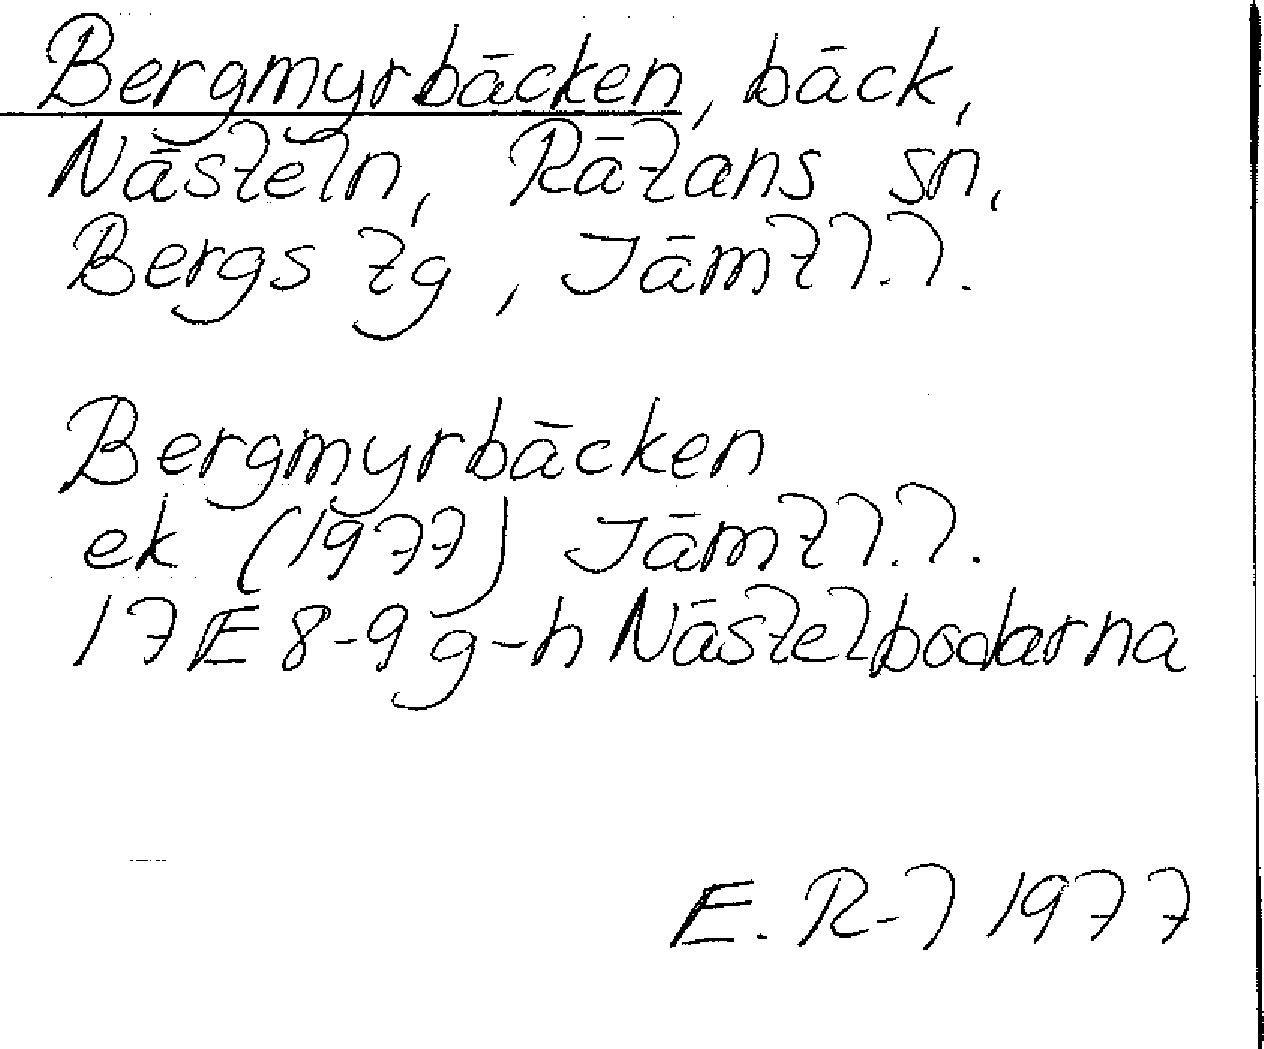 Bergmyrbäcken, bäck,
Nästeln, Rätans sn,
Bergs tg, Jämtl.l.
Bergmyrbäcken
ek (1977) Jämtl.l.
17E 8-9 g-h Nästelbodarna
E. R-l 1977